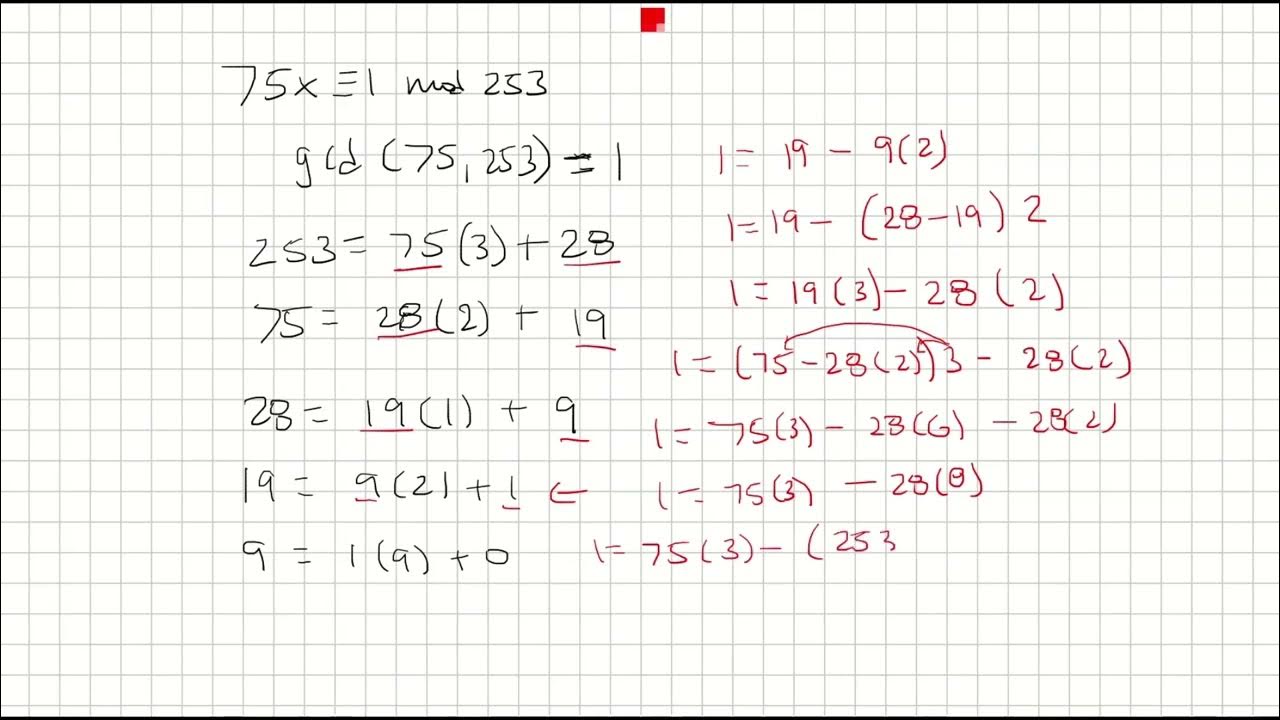 75x ≡ 1 mod 253
gcd (75, 253) = 1
253 = 75(3) + 28
75 = 28(2) + 19
28 = 19(1) + 9
19 = 9(2) + 1 ←
9 = 1(9) + 0
1 = 19 - 9(2)
1 = 19 - (28 - 19) 2
1 = 19(3) - 28(2)
1 = (75 - 28(2)) 3 - 28(2)
1 = 75(3) - 28(6) - 28(2)
1 = 75(3) - 28(8)
1 = 75(3) - (253